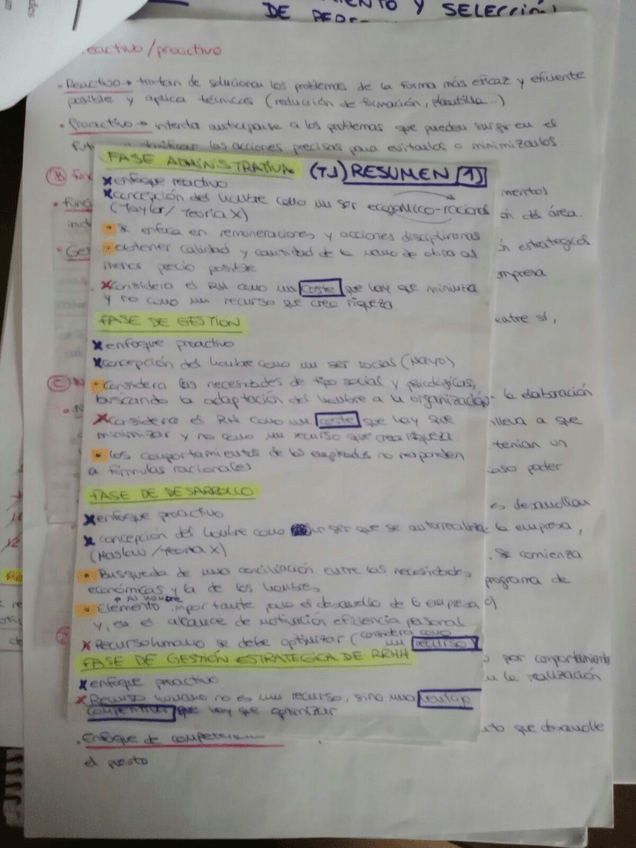 MIENTO Y SELECCIÓN
DE PERS
eactivo/proactivo
· Reactivo → tratan de solucionar los problemas de la forma más eficaz y eficiente
posible y aplica técnicas (reducción de formación, plantilla...)
· Proactivo → intenta anticiparse a los problemas que puedan surgir en el
las acciones precisas para evitarlos o minimizarlos.
FASE ADMINISTRATIVA (T1) RESUMEN 1
x enfoque reactivo
x concepción del hombre como un ser económico-racional
(Taylor/Teoría X)
énfasis en remuneraciones y acciones disciplinarias
obtener calidad y cantidad de la mano de obra al
menor precio posible
x Considera el RH como un coste que hay que minimizar
y no como un recurso que crea riqueza
FASE DE GESTIÓN
x enfoque proactivo
x concepción del hombre como un ser social (Mayo)
· Considera las necesidades de tipo social y psicológicas,
buscando la adaptación del hombre a la organización
x Considera el RH como un coste que hay que
minimizar y no como un recurso que crea riqueza
· los comportamientos de los empleados no responden
a fórmulas racionales
FASE DE DESARROLLO
x enfoque proactivo
x concepción del hombre como un ser que se autorrealiza
(Maslow/Teoría
· Búsqueda de una conciliación entre las necesidades
económicas y la de los hombres
· Elemento importante para el desarrollo de la empresa
y, es el alcance de motivación eficiencia personal
x Recurso humano se debe optimizar (considera como
un recurso
FASE DE GESTIÓN ESTRATEGICA DE RRHH
x enfoque proactivo
x Recurso humano no es un recurso, sino una ventaja
competitiva que hay que optimizar
B
mentos)
de área.
estratégicos
· Ges
empresa
entre sí,
C
la elaboración
lleva a que
tenían un
caso poder
es desarrollan
la empresa,
se comienza
programa de
por comportamiento
la realización
que desarrolle
· Enfoque de
el puesto